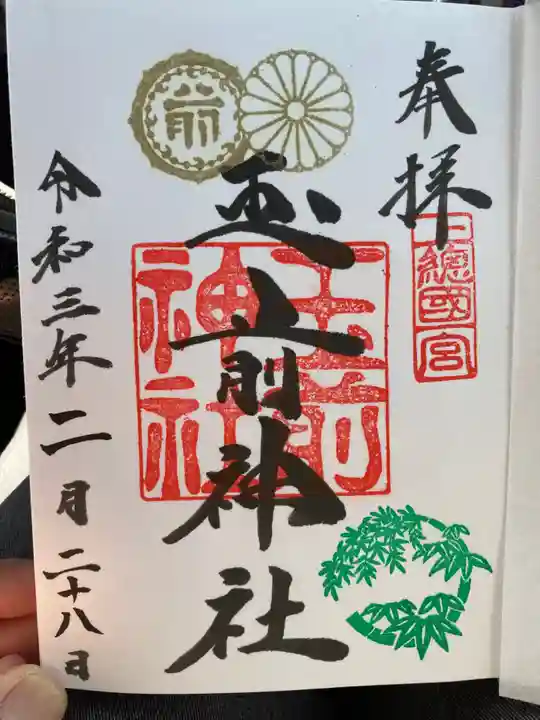 奉拝
上總國宮
前
玉前神社
玉前神社
令和三年二月二十八日